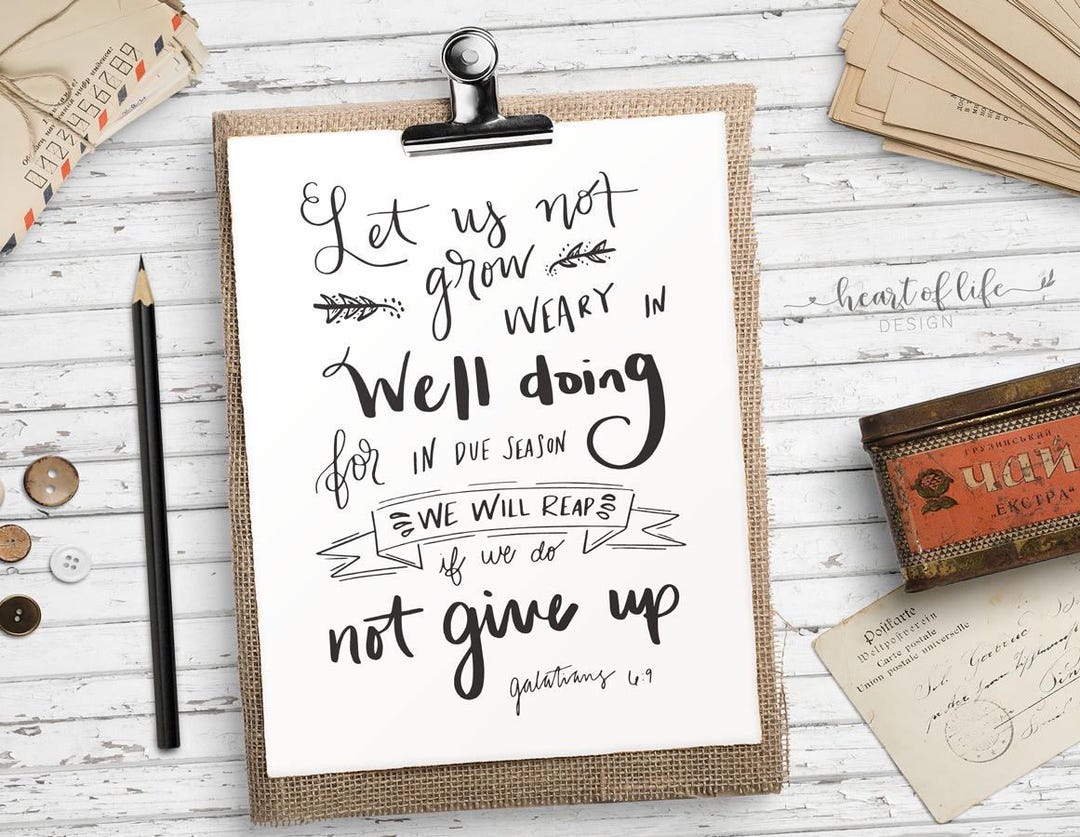 Let us not
grow
WEARY IN
Well doing
for IN DUE SEASON
WE WILL REAP
if we do
not give up
galatians 6:9
heart of life
DESIGN
ГРУЗИНСЬКИЙ
ЧАЙ
"ЕКСТРА"
Postkarte
Weltpostverein
Carte postale
Union postale universelle
0123456789